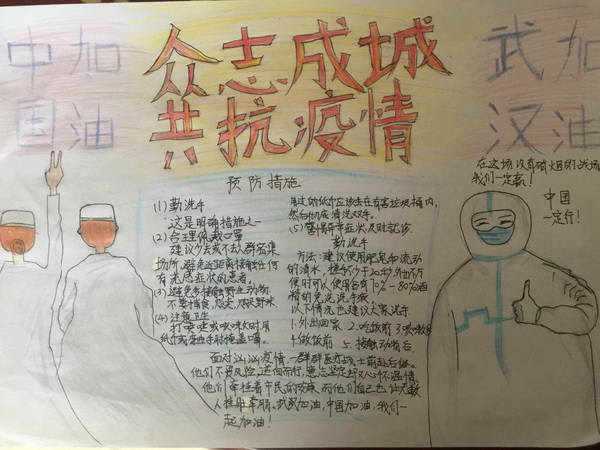 众志成城
共抗疫情
中加
国油
武加
汉油
在这场没有硝烟的战场
我们一定赢！
中国
一定行！
预防措施
(1) 勤洗手
这是明确措施之一
(2) 合理佩戴口罩
建议少去或不去人群密集
场所,避免近距离接触任何
有流感症状的患者,
(3) 避免多接触野生动物
不要捕食
(4) 注意卫生
打喷嚏或咳嗽时用
纸巾或衣袖手肘掩盖口鼻。
用过的纸巾应该丢在有害垃圾桶内,
然后彻底清洗双手。
(5) 警惕异常症状及时就诊
勤洗手
方法:建议使用肥皂和流动
的清水,搓手不少于20秒,外出不方
便时可以使用含有70%-80%酒
精的免洗洗手液
以下情况也建议大家洗手
1.外出回家 2.吃饭前 3.咳嗽后
4.做饭前 5.接触动物后
面对汹汹疫情,一群群医疗战士前赴后继。
他们不畏危险,逆向而行,意志坚定却又心怀温情。
他们牵挂着市民的安康,而他们自己也让无数
人挂肚牵肠。武汉加油,中国加油,我们一
起加油！